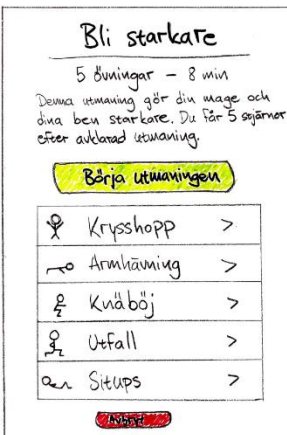 Bli starkare
5 övningar – 8 min
Denna utmaning gör din mage och
dina ben starkare. Du får 5 stjärnor
efter avklarad utmaning.
Börja utmaningen
Krysshopp >
Armhävning >
Knäböj >
Utfall >
Situps >
Avbryt